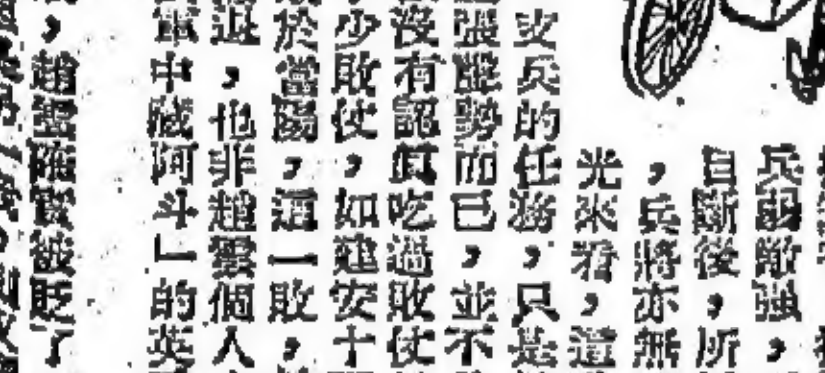 兵弱敵強，
自斷後，所
，兵將亦無
光來看，這
支兵的任務，只是
張聲勢而已，並不
沒有認真吃過敗仗
少敗仗，如建安十
於當陽，這一敗，
退，也非趙雲個人
軍中藏阿斗」的英
，趙雲確實被貶了